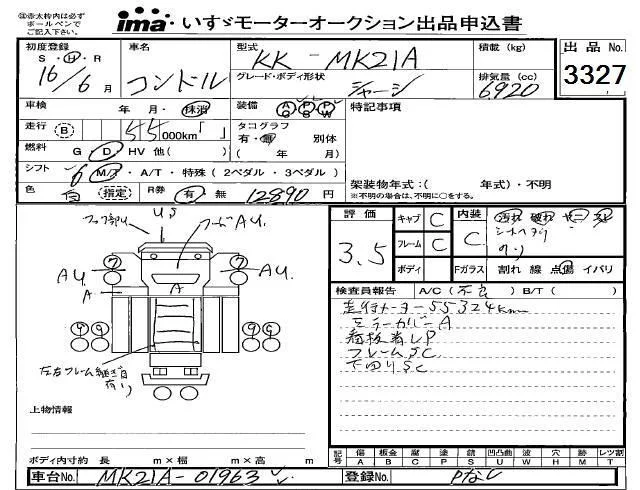 ㊟赤太枠内は必ず
ボールペンで
ご記入下さい。
ima いすゞモーターオークション出品申込書
初度登録 車名 型式 KK-MK21A 積載(kg) 出品No.
S・H・R 16年6月 コンドル グレード・ボディ形状 シャーシ 排気量(cc) 6920 3327
車検 年 月・抹消 装備 AG PS PW 特記事項
走行 (B) 55,000km「 」 タコグラフ
有・無 別体
燃料 G D・HV 他( ) ( 年 月)
シフト 6 M/T・A/T・特殊(2ペダル・3ペダル) 架装物年式:( 年式)・不明
色 白 (指定) R券 有 無 12890円 ※不明の場合は、不明に○をする。
評価 3.5 キャブ C 内装 C 汚れ 破れ ヤニ スレ
フレーム C シートヘタリ
ボディ Fガラス 割れ 線 点傷 イバリ
フック割れ US フードAU.
⑦ ⑦
AU. AU.
A A
⑨⑨ ⑨⑨
左右フレーム継ぎ目
有り
検査員報告 A/C(不良)B/T( )
走行メーター55324km
ミラーカバーA
看板消しP
フレームSC
下回りSC
上物情報
ボディ内寸約 長 m×幅 m×高 m
記号 傷 板金 腐 塗 錆 凹凸曲 波 穴 跡 レツ割
A B C P S U W H M T
車台No. MK21A-01963 登録No. Pなし